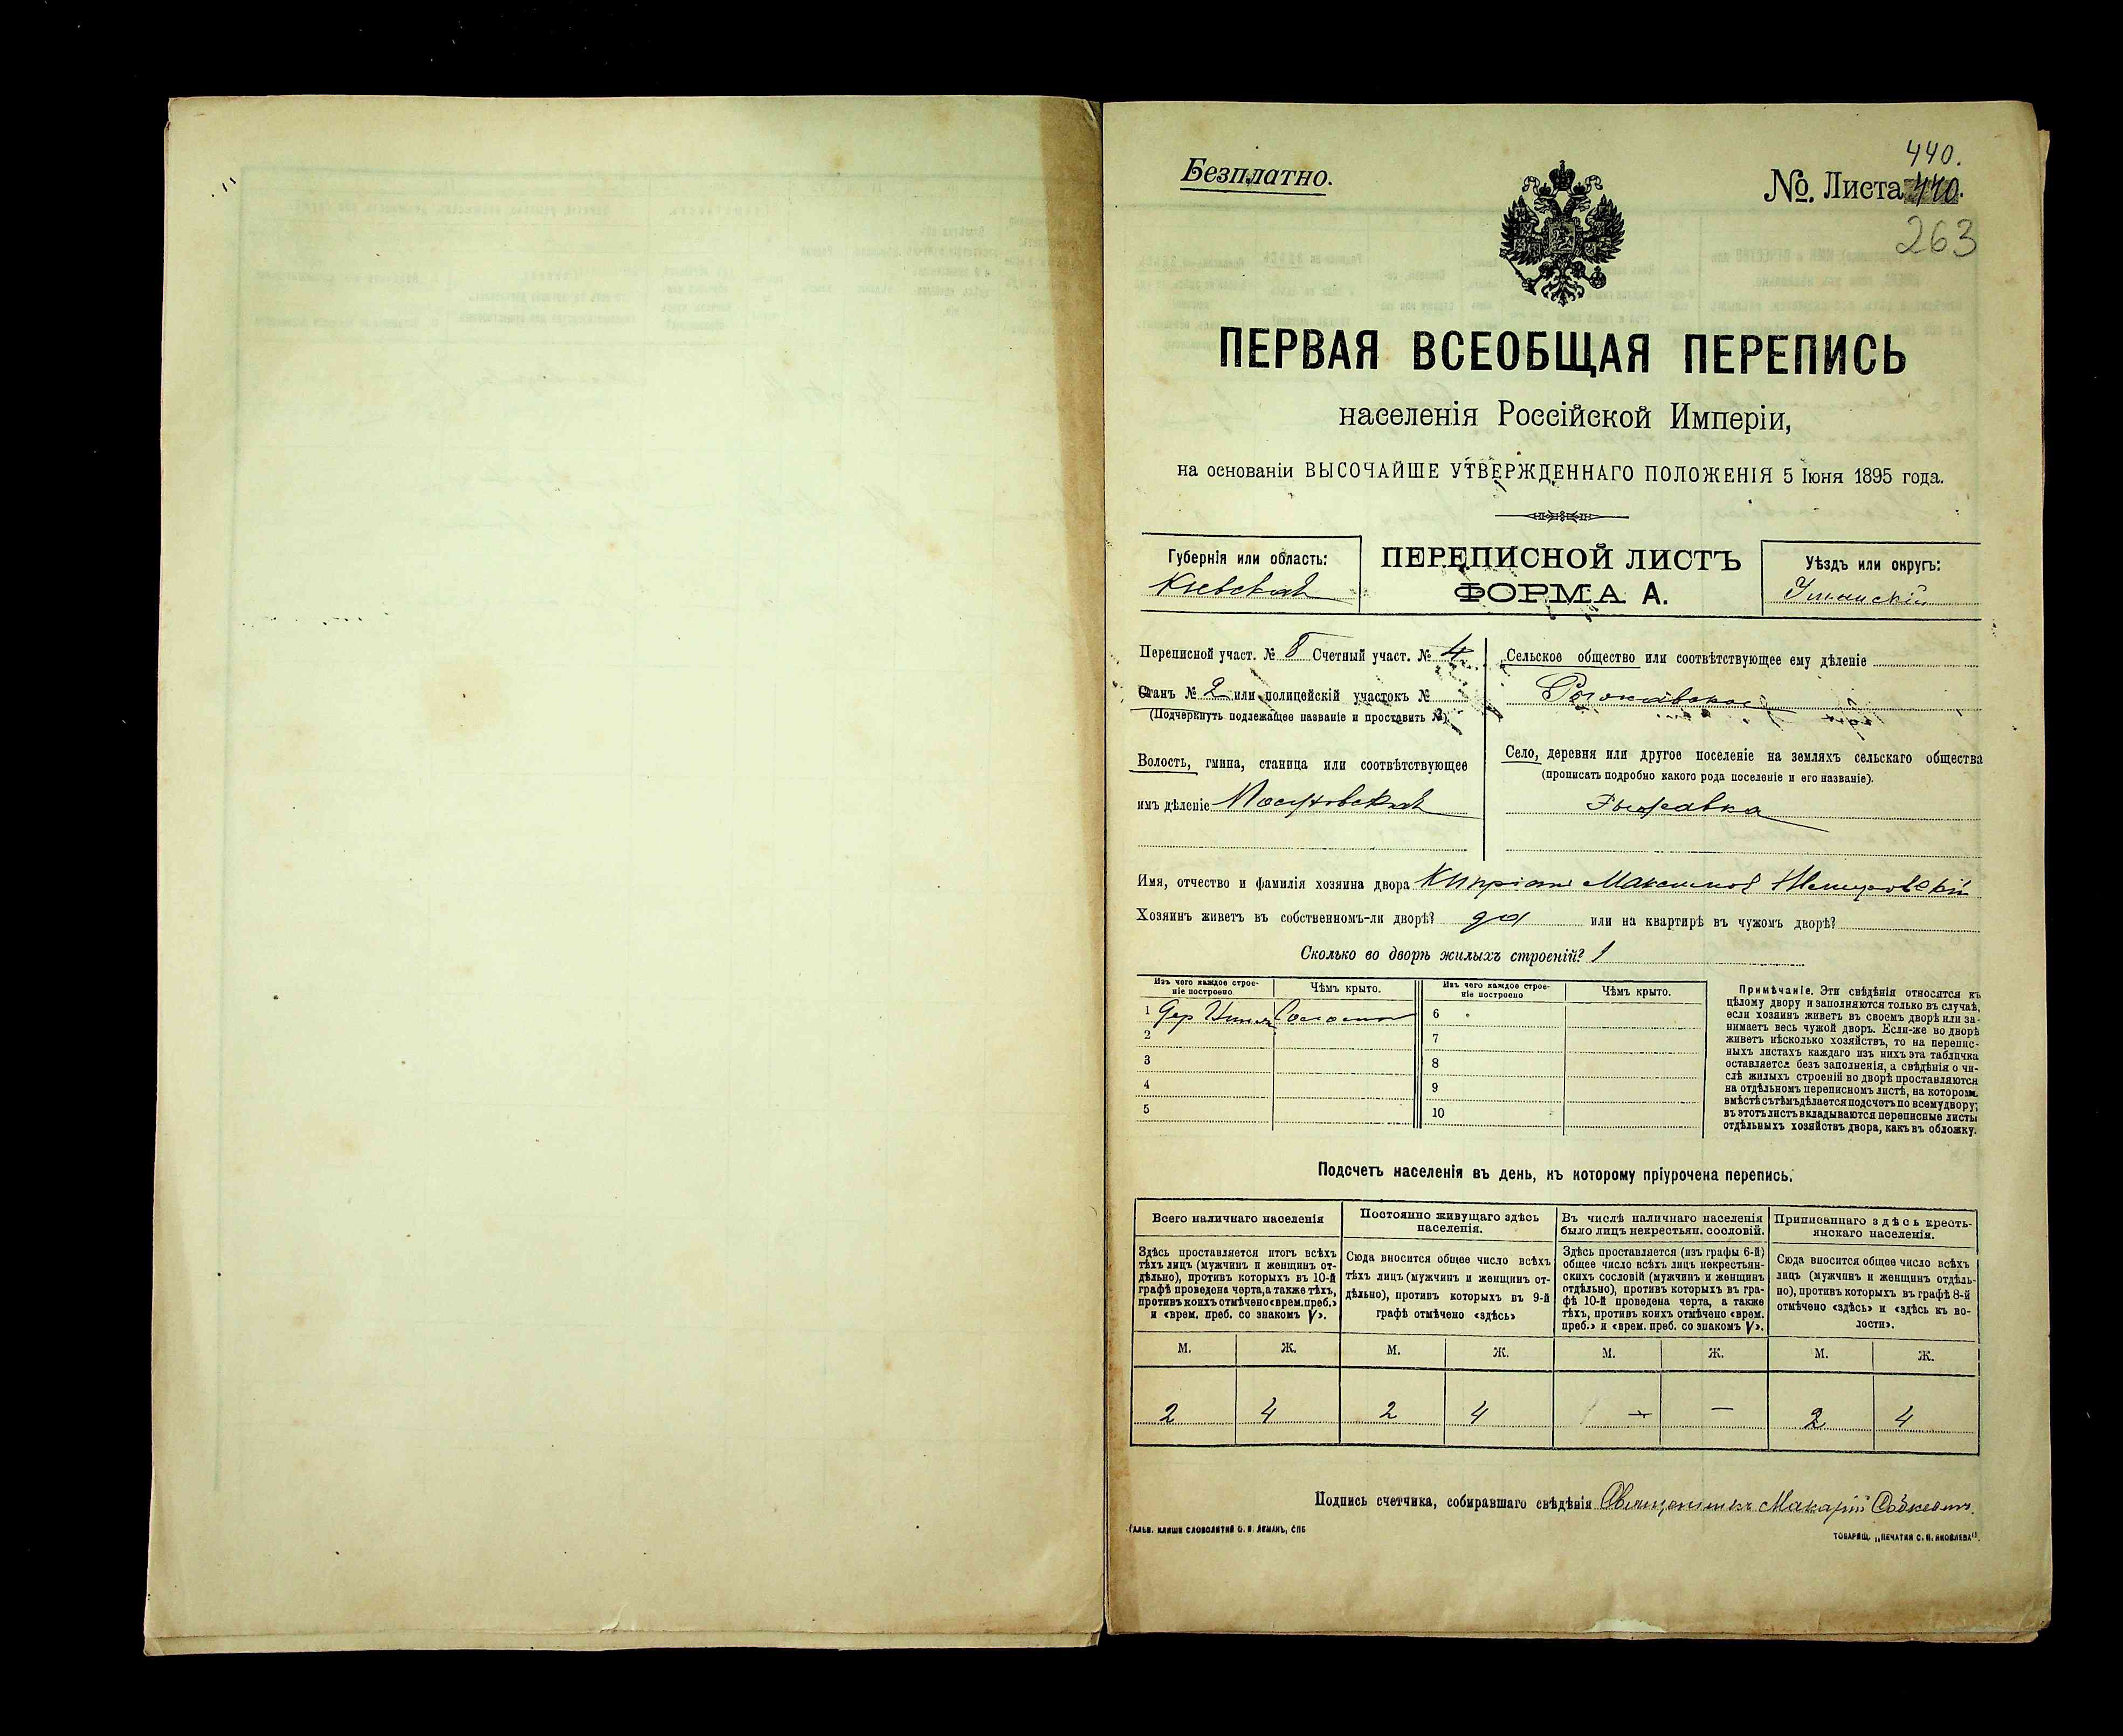 Безплатно.
440.
№. Листа 440.
263
ПЕРВАЯ ВСЕОБЩАЯ ПЕРЕПИСЬ
населенія Россійской Имперіи,
на основаніи ВЫСОЧАЙШЕ УТВЕРЖДЕННАГО ПОЛОЖЕНІЯ 5 Іюня 1895 года.
Губернія или область:
Кіевская
ПЕРЕПИСНОЙ ЛИСТЪ
ФОРМА А.
Уѣздъ или округъ:
Уманскій
Переписной участ. № 8 Счетный участ. № 4
Станъ № 2 или полицейскій участокъ №
(Подчеркнуть подлежащее названіе и проставить №)
Волость, гмина, станица или соотвѣтствующее
имъ дѣленіе
Сельское общество или соотвѣтствующее ему дѣленіе
Село, деревня или другое поселеніе на земляхъ сельскаго общества
(прописать подробно какого рода поселеніе и его названіе).
Рыжавка
Имя, отчество и фамилія хозяина двора Кипріанъ Максимовъ
Хозяинъ живетъ въ собственномъ-ли дворѣ? да или на квартирѣ въ чужомъ дворѣ?
Сколько во дворѣ жилыхъ строеній? 1
Изъ чего каждое строе-
ніе построено
Чѣмъ крыто.
Изъ чего каждое строе-
ніе построено
Чѣмъ крыто.
1 Соломой
2
3
4
5
6
7
8
9
10
Примѣчаніе. Эти свѣдѣнія относятся къ
цѣлому двору и заполняются только въ случаѣ,
если хозяинъ живетъ въ своемъ дворѣ или за-
нимаетъ весь чужой дворъ. Если-же во дворѣ
живетъ нѣсколько хозяйствъ, то на перепис-
ныхъ листахъ каждаго изъ нихъ эта табличка
оставляется безъ заполненія, а свѣдѣнія о чи-
слѣ жилыхъ строеній во дворѣ проставляются
на отдѣльномъ переписномъ листѣ, на которомъ
вмѣстѣ съ тѣмъ дѣлается подсчетъ по всему двору;
въ этотъ листъ вкладываются переписные листы
отдѣльныхъ хозяйствъ двора, какъ въ обложку.
Подсчетъ населенія въ день, къ которому пріурочена перепись.
Всего наличнаго населенія
Здѣсь проставляется итогъ всѣхъ
тѣхъ лицъ (мужчинъ и женщинъ от-
дѣльно), противъ которыхъ въ 10-й
графѣ проведена черта, а также тѣхъ,
противъ коихъ отмѣчено «врем. преб.»
и «врем. преб. со знакомъ V».
Постоянно живущаго здѣсь
населенія.
Сюда вносится общее число всѣхъ
тѣхъ лицъ (мужчинъ и женщинъ от-
дѣльно), противъ которыхъ въ 9-й
графѣ отмѣчено «здѣсь»
Въ числѣ наличнаго населенія
было лицъ некрестьян. сословій.
Здѣсь проставляется (изъ графы 6-й)
общее число всѣхъ лицъ некрестьян-
скихъ сословій (мужчинъ и женщинъ
отдѣльно), противъ которыхъ въ гра-
фѣ 10-й проведена черта, а также
тѣхъ, противъ коихъ отмѣчено «врем.
преб.» и «врем. преб. со знакомъ V».
Приписаннаго здѣсь кресть-
янскаго населенія.
Сюда вносится общее число всѣхъ
лицъ (мужчинъ и женщинъ отдѣль-
но), противъ которыхъ въ графѣ 8-й
отмѣчено «здѣсь» и «здѣсь къ во-
лости».
М. Ж. М. Ж. М. Ж. М. Ж.
2 4 2 4 — — 2 4
Подпись счетчика, собиравшаго свѣдѣнія Священникъ Макарій
ГАЛЬВ. КЛИШЕ СЛОВОЛИТНИ О. И. ЛЕМАНЪ, СПБ
ТОВАРИЩ. „ПЕЧАТНЯ С. П. ЯКОВЛЕВА".